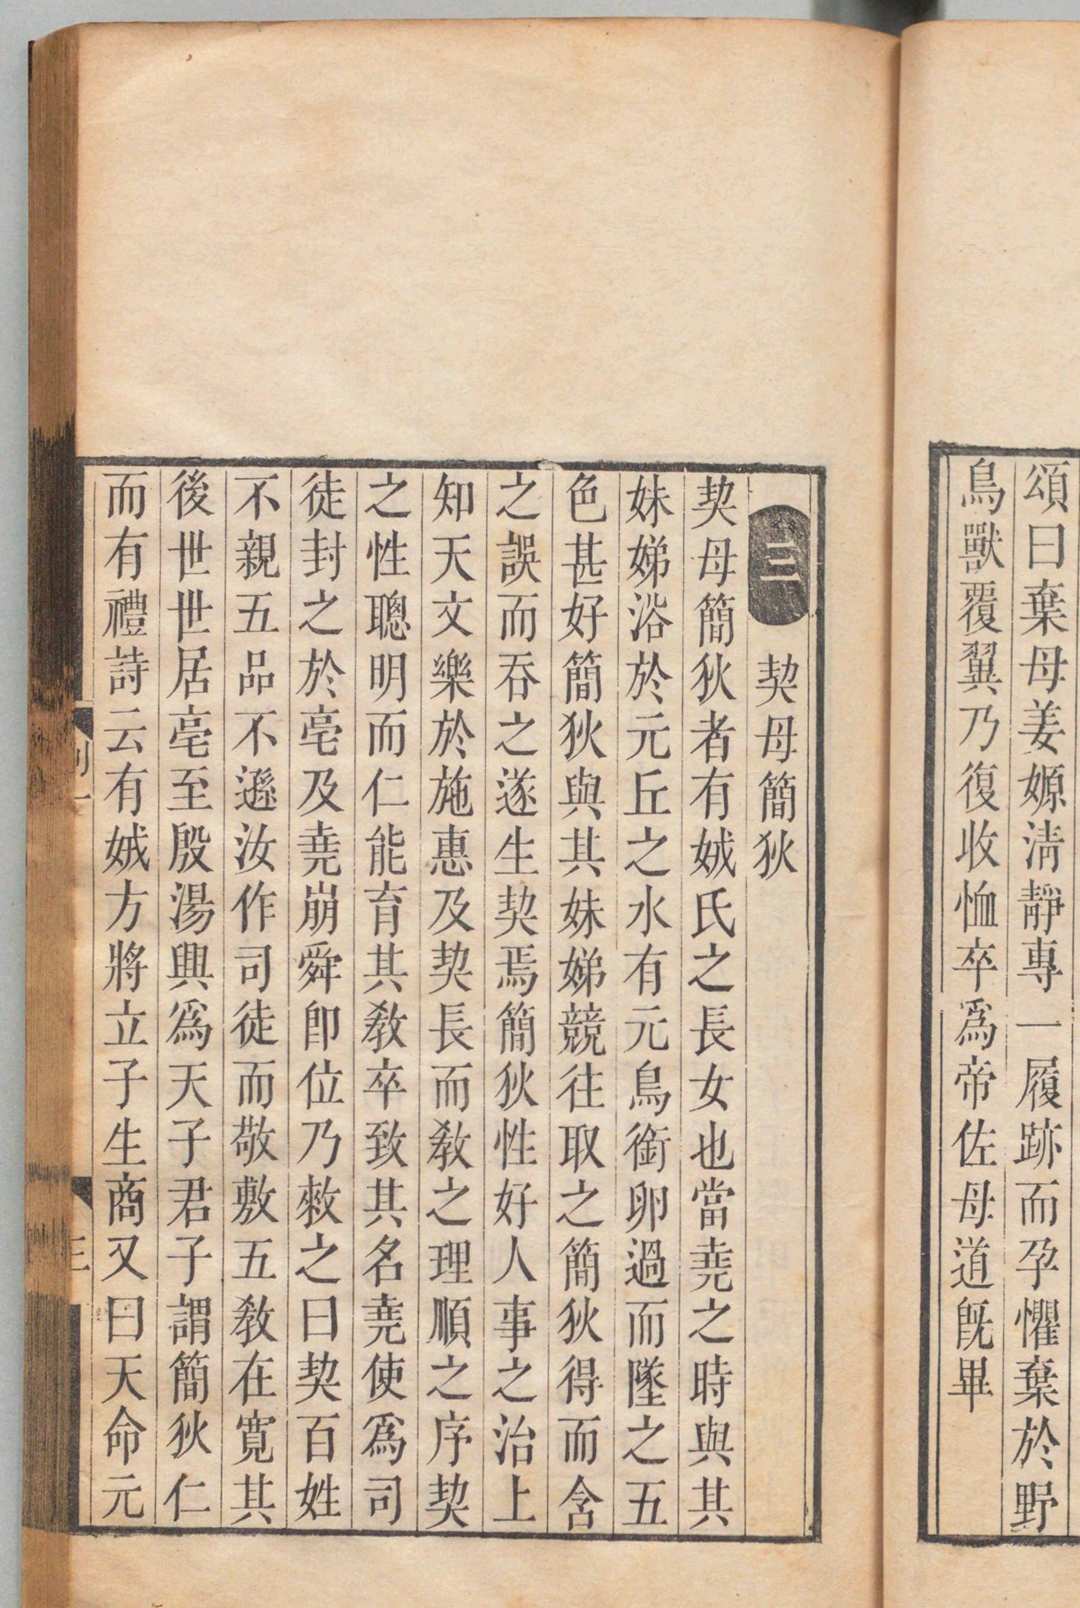 頌曰棄母姜嫄淸靜專一履跡而孕懼棄於野
鳥獸覆翼乃復收恤卒爲帝佐母道旣畢
三 契母簡狄
契母簡狄者有娀氏之長女也當堯之時與其
妹娣浴於元丘之水有元鳥銜卵過而墜之五
色甚好簡狄與其妹娣競往取之簡狄得而含
之誤而吞之遂生契焉簡狄性好人事之治上
知天文樂於施惠及契長而敎之理順之序契
之性聰明而仁能育其敎卒致其名堯使爲司
徒封之於亳及堯崩舜卽位乃敕之曰契百姓
不親五品不遜汝作司徒而敬敷五敎在寬其
後世世居亳至殷湯興爲天子君子謂簡狄仁
而有禮詩云有娀方將立子生商又曰天命元